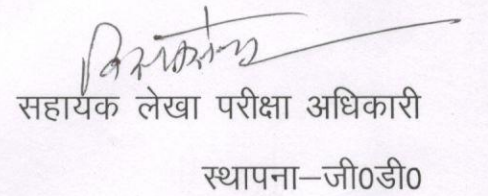 सहायक लेखा परीक्षा अधिकारी
स्थापना—जी0डी0